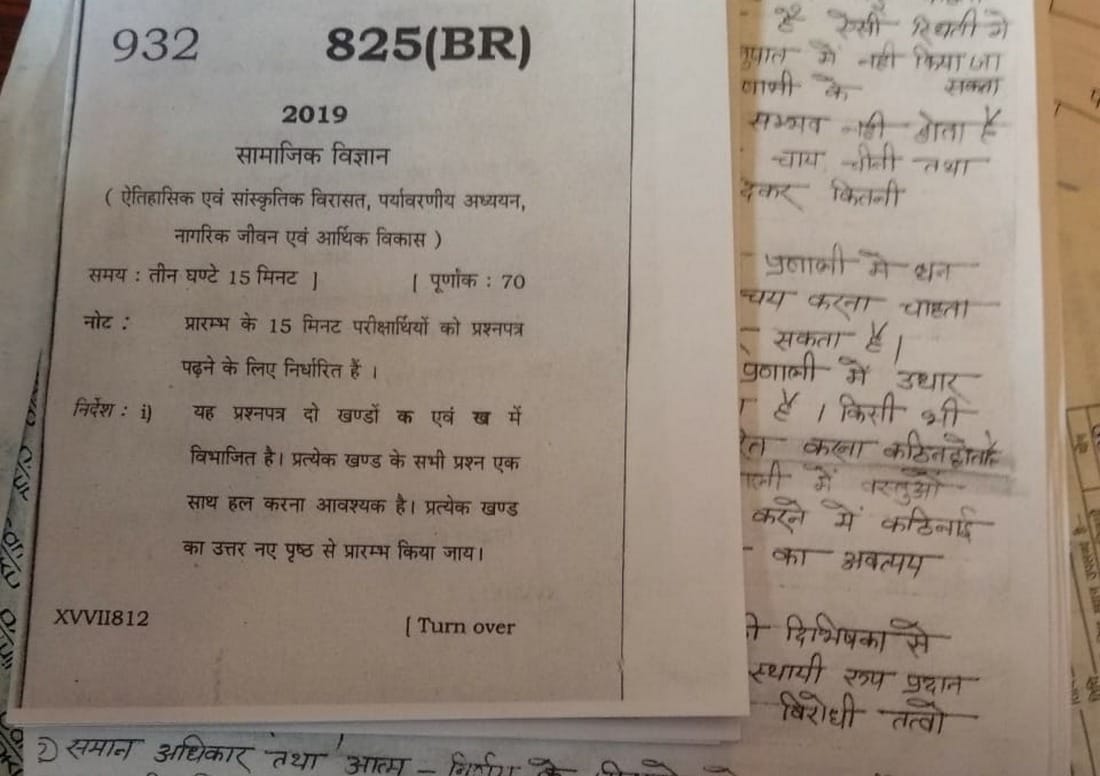 932
825(BR)
2019
सामाजिक विज्ञान
( ऐतिहासिक एवं सांस्कृतिक विरासत, पर्यावरणीय अध्ययन,
नागरिक जीवन एवं आर्थिक विकास )
समय : तीन घण्टे 15 मिनट ] [ पूर्णांक : 70
नोट : प्रारम्भ के 15 मिनट परीक्षार्थियों को प्रश्नपत्र
पढ़ने के लिए निर्धारित हैं ।
निर्देश : i) यह प्रश्नपत्र दो खण्डों क एवं ख में
विभाजित है। प्रत्येक खण्ड के सभी प्रश्न एक
साथ हल करना आवश्यक है। प्रत्येक खण्ड
का उत्तर नए पृष्ठ से प्रारम्भ किया जाय।
XVVII812
[ Turn over
है ऐसी स्थिती में
में नही किया जा
के सकता
सम्भव नही होता है
चाय चीनी तथा
देकर कितनी
प्रणाली में धन
चय करना चाहता
सकता है |
प्रणाली में उधार
है । किसी भी
करना कठिन होता है
में वस्तुओं
करने में कठिनाई
का अवत्यय
विभिषका से
स्थायी रूप प्रदान
विरोधी तत्वो
2) समान अधिकार तथा आत्म –